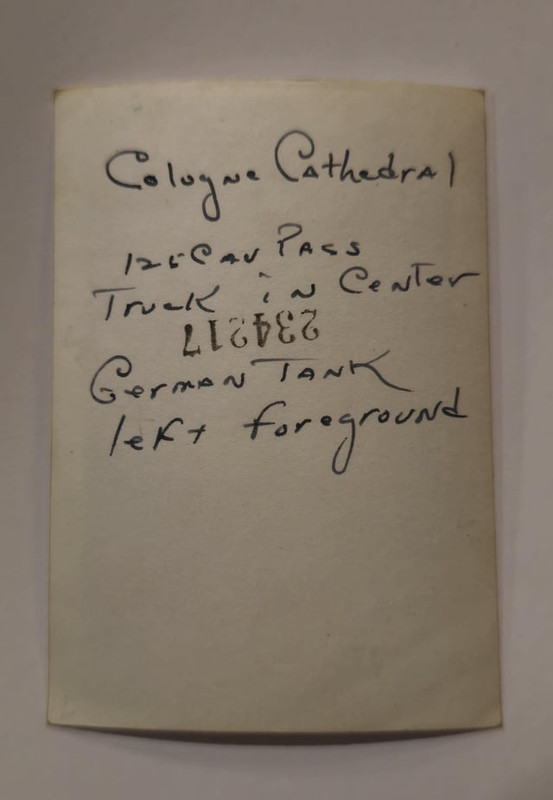 Cologne Cathedral
125 Cav Pass
Truck in Center
234217
German Tank
left foreground